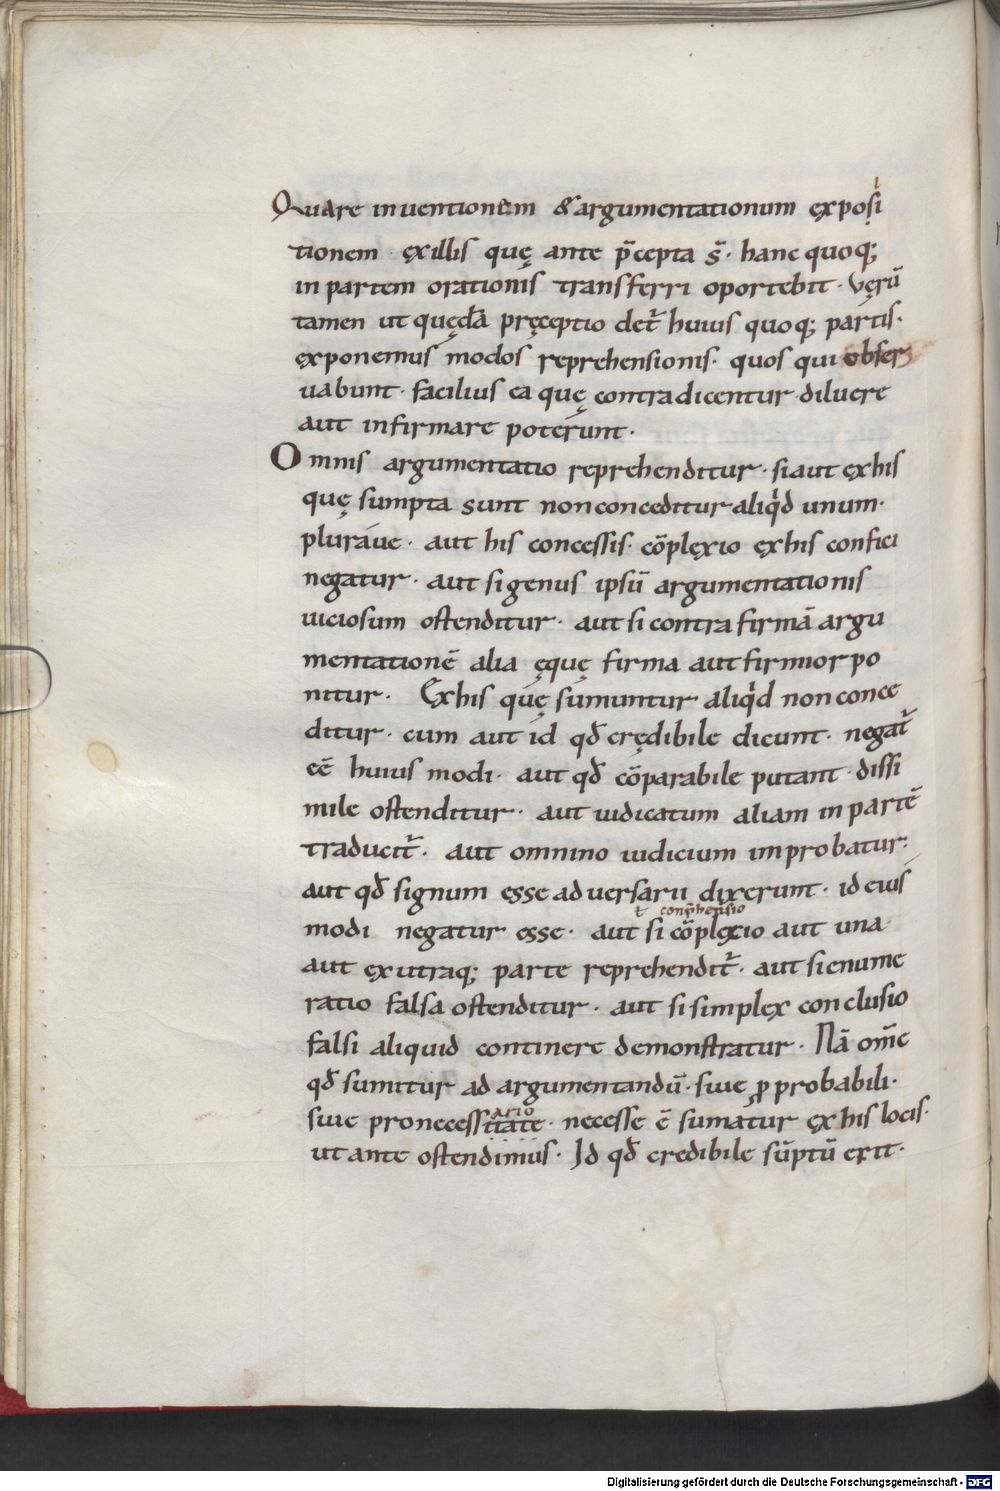 Quare inuentionem & argumentationum exposi
tionem · ex illis quę ante p̄cepta s̄· hanc quoq;
in partem orationis transferri oportebit · Verū
tamen ut quędā pręceptio det̄ huius quoq; partis·
exponemus modos reprehensionis· quos qui obser
uabunt· facilius ea quę contra dicentur· diluere
aut infirmare poterunt·
Omnis argumentatio reprehenditur· si aut ex his
quę sumpta sunt non conceditur aliq̍d unum·
pluraue· aut his concessis· cōplexio ex his confici
negatur· aut si genus ipsū argumentationis
uiciosum ostenditur· aut si contra firmā argu
mentationē alia ęque firma aut firmior po
nitur· Ex his quę sumuntur aliq̍d non conce
ditur· cum aut id qđ credibile dicunt· negat̄
eē huius modi· aut qđ cōparabile putant· dissi
mile ostenditur· aut iudicatum aliam in partē
traducit̄· aut omnino iudicium improbatur·
aut qđ signum esse aduersarii dixerunt· id eius
ł conp̄hensio
modi negatur esse· aut si cōplexio aut una
aut ex utraq; parte reprehendit̄· aut si enume
ratio falsa ostenditur· aut si simplex conclusio
falsi aliquid continere demonstratur· Nā om̄e
qđ sumitur ad argumentandū· siue ꝓ probabili·
ario
siue pro necessitate· necesse ē sumatur ex his locis·
ut ante ostendimus· Id qđ credibile sūptū erit·
Digitalisierung gefördert durch die Deutsche Forschungsgemeinschaft - DFG